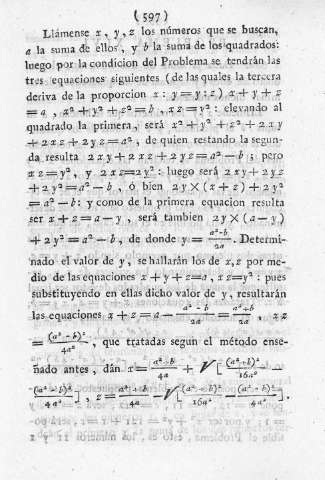 (597)
Llámense x, y, z los números que se buscan,
a la suma de ellos, y b la suma de los quadrados:
luego por la condicion del Problema se tendrán las
tres equaciones siguientes (de las quales la tercera
deriva de la proporcion x : y = y : z) x + y + z
= a , x² + y² + z² = b , x z = y² : elevando al
quadrado la primera, será x² + y² + z² + 2 x y
+ 2 x z + 2 y z = a² , de quien restando la segun-
da resulta 2 x y + 2 x z + 2 y z = a² — b ; pero
x z = y² , y 2 x z = 2 y² : luego será 2 x y + 2 y z
+ 2 y² = a² — b , ó bien 2 y × (x + z) + 2 y²
= a² — b : y como de la primera equacion resulta
ser x + z = a — y , será tambien 2 y × (a — y)
+ 2 y² = a² — b , de donde y = (a² - b)/2a . Determi-
nado el valor de y , se hallarán los de x, z por me-
dio de las equaciones x + y + z = a , x z = y² : pues
substituyendo en ellas dicho valor de y , resultarán
las equaciones x + z = a — (a² - b)/2a = (a² + b)/2a , x z
= (a² - b)²/4a² , que tratadas segun el método ense-
ñado antes , dán x = (a² + b)/4a + √[(a² + b)²/16a²
— (a² - b)²/4a²] , z = (a² + b)/4a — √[(a² + b)²/16a² — (a² - b)²/4a²] .